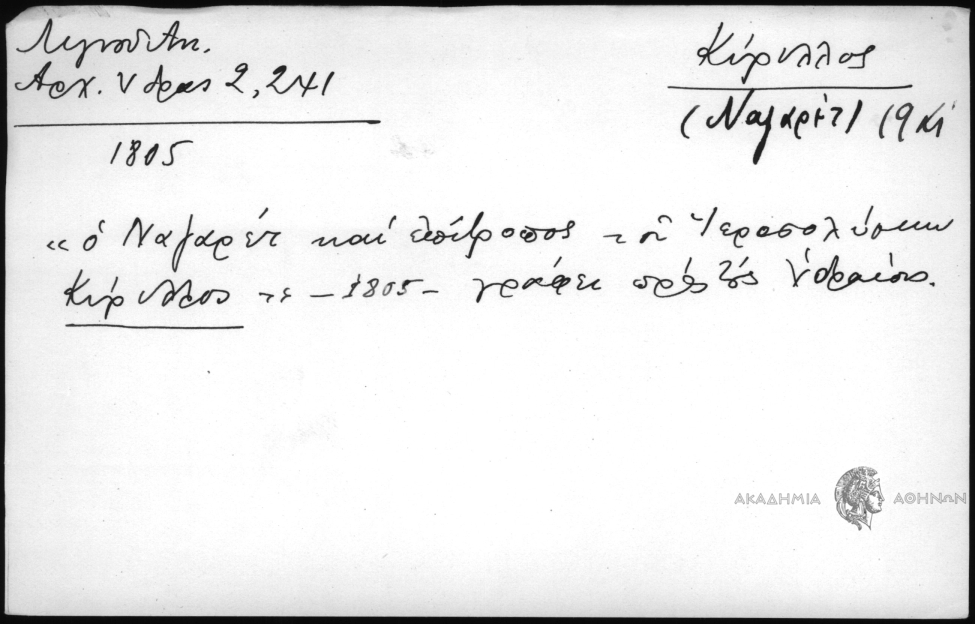 Λιγνοῦ Ἀντ.
Αρχ. Ύδρας 2, 241
1805
Κύριλλος
(Ναζαρέτ) 19 αἰ
« ὁ Ναζαρέτ καί ἐπίτροπος τοῦ Ἱεροσολύμων
Κύριλλος τε - 1805 - γράφει πρός τούς Ὑδραίους.
ΑΚΑΔΗΜΙΑ ΑΘΗΝΩΝ